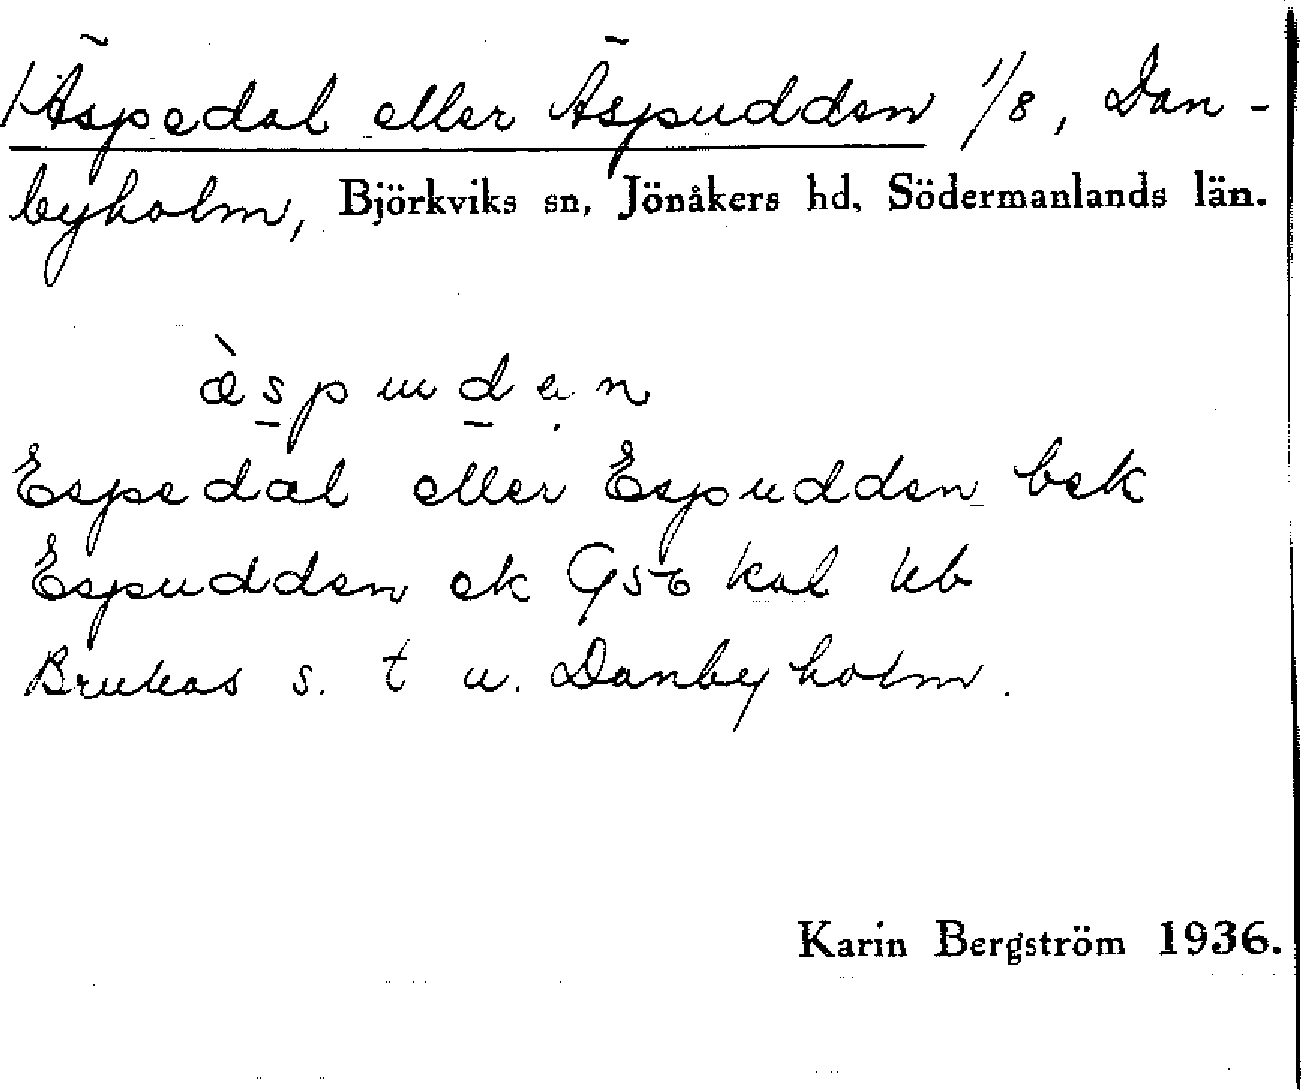 Äspedal eller Äspudden 1/8, Dan-
byholm, Björkviks sn, Jönåkers hd, Södermanlands län.
æ̀spuden
Espedal eller Espudden bek
Espudden ek G56 kal
Brukas s. t u. Danbyholm.
Karin Bergström 1936.